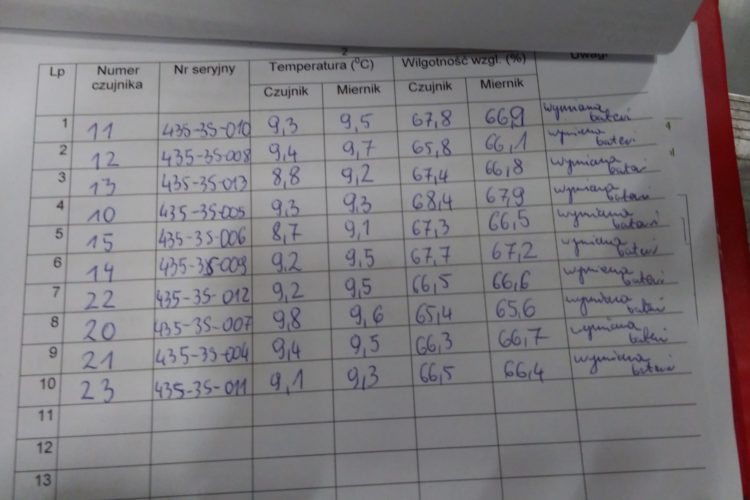 2
Lp Numer czujnika Nr seryjny Temperatura (°C) Wilgotność wzgl. (%) Uwagi
Czujnik Miernik Czujnik Miernik
1 11 435-35-010 9,3 9,5 67,8 66,9 wymiana baterii
2 12 435-35-008 9,4 9,7 65,8 66,1 wymiana baterii
3 13 435-35-013 8,8 9,2 67,4 66,8 wymiana baterii
4 10 435-35-005 9,3 9,3 68,4 67,9 wymiana baterii
5 15 435-35-006 8,7 9,1 67,3 66,5 wymiana baterii
6 14 435-35-009 9,2 9,5 67,7 67,2 wymiana baterii
7 22 435-35-012 9,2 9,5 66,5 66,6 wymiana baterii
8 20 435-35-007 9,8 9,6 65,4 65,6 wymiana baterii
9 21 435-35-004 9,4 9,5 66,3 66,7 wymiana baterii
10 23 435-35-011 9,1 9,3 66,5 66,4 wymiana baterii
11
12
13